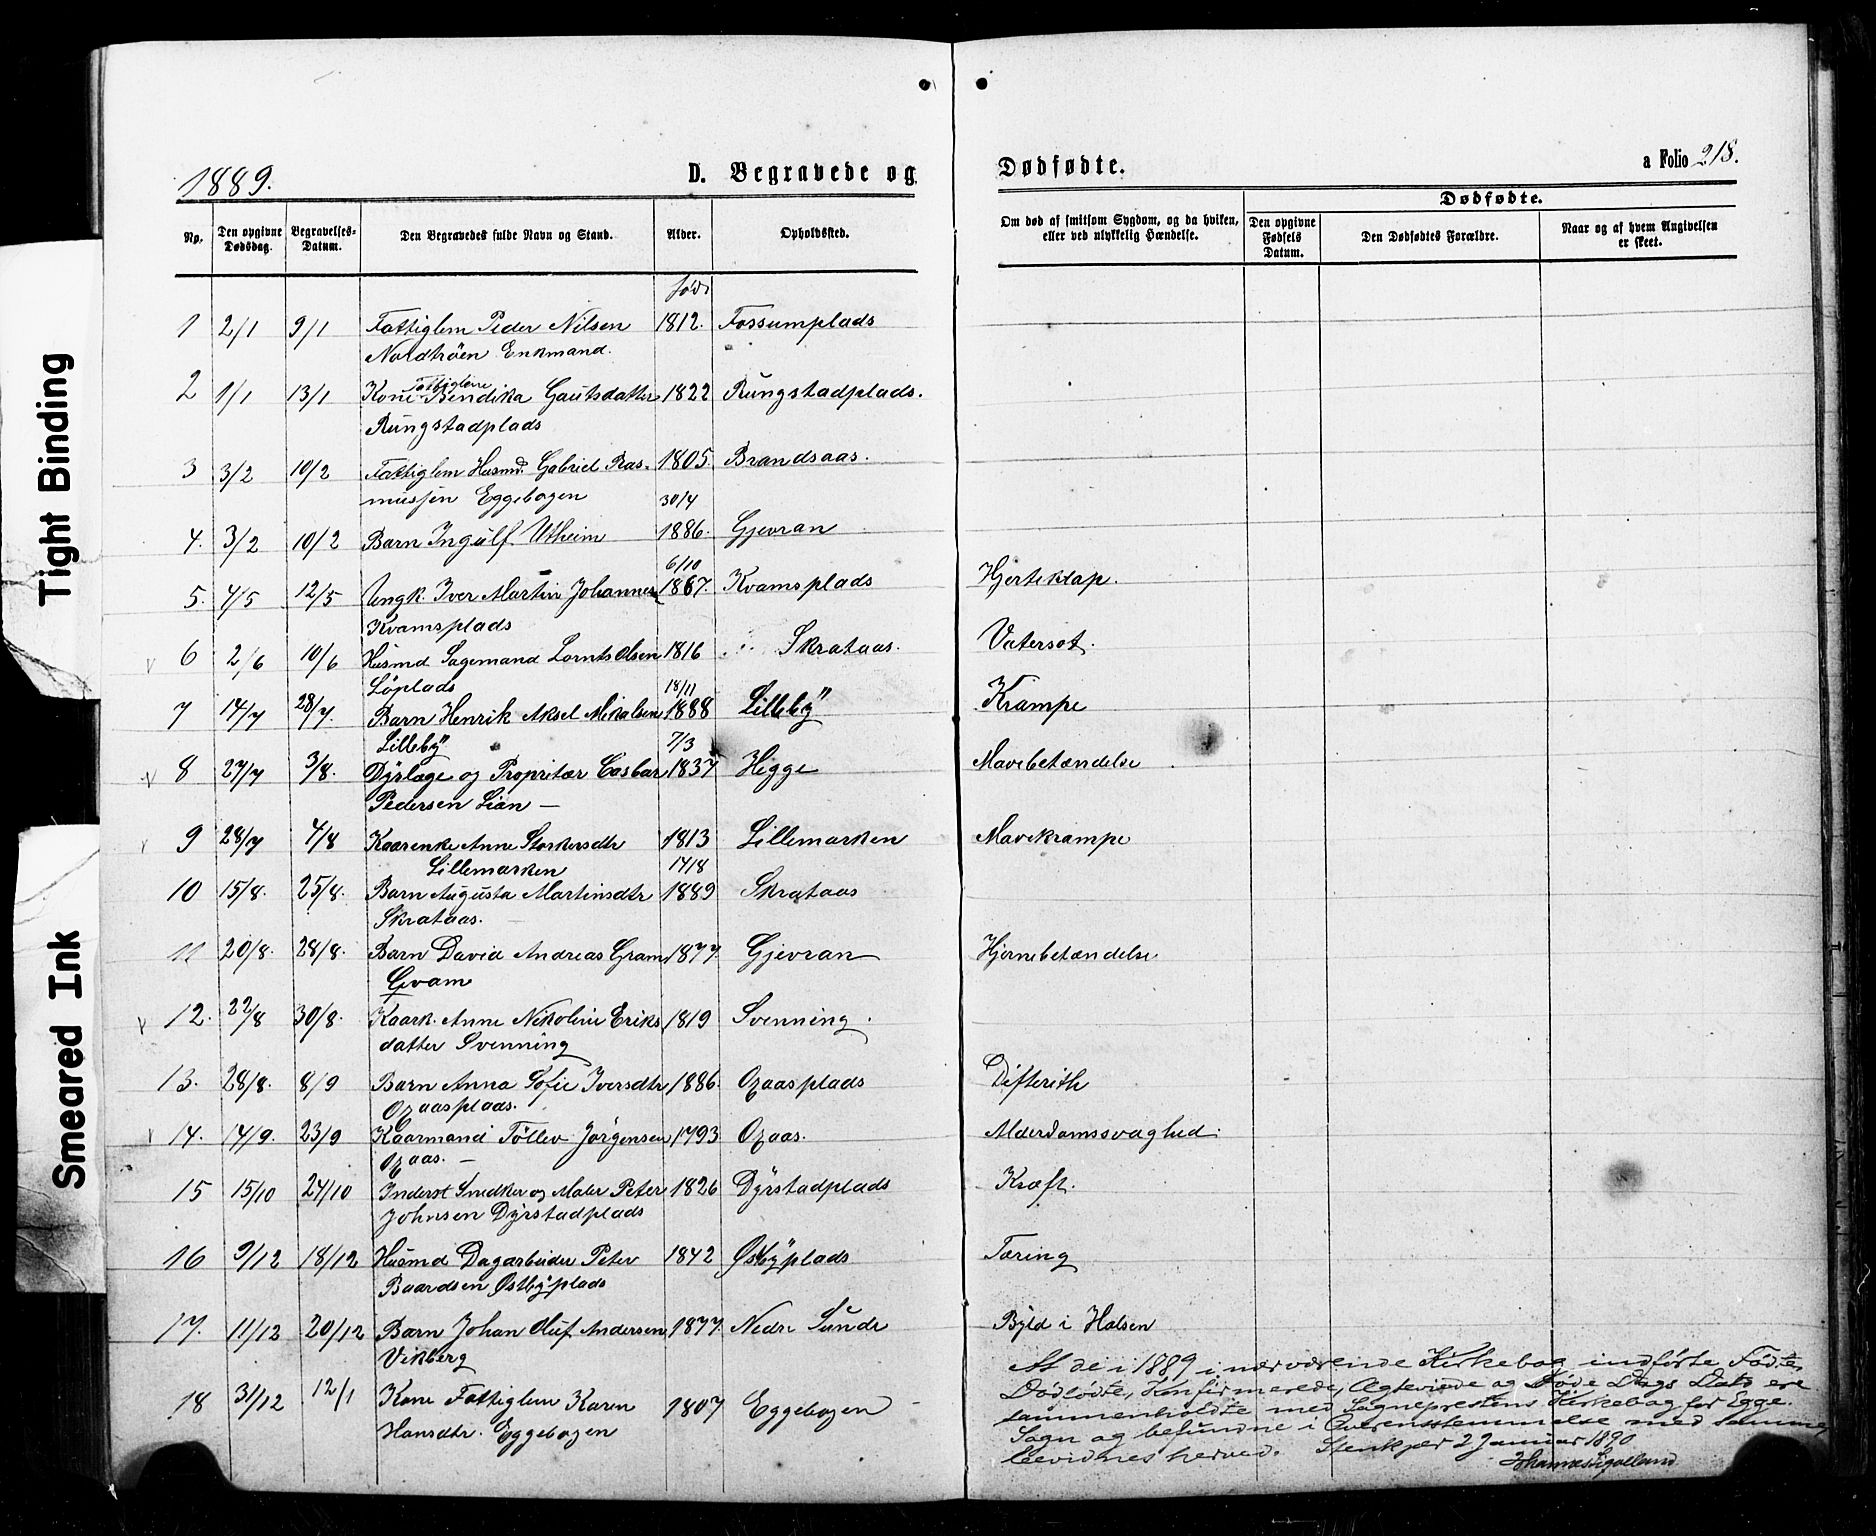 1889.
D. Begravede og
Dødfødte.
a Folio 218.
No.
Den opgivne Dødsdag.
Begravelses-Datum.
Den Begravedes fulde Navn og Stand.
Alder.
Opholdssted.
Om død af smitsom Sygdom, og da hvilken, eller ved ulykkelig Hændelse.
Dødfødte.
Den opgivne Fødsels Datum.
Den Dødfødtes Forældre.
Naar og af hvem Angivelsen er skeet.
født
1 2/1 9/1 Fattiglem Peder Nilsen 1812. Fossumplads
Nordtrøen Enkmand.
Fattiglem
2 1/1 13/1 Kone Bendika Gautsdatter 1822 Rungstadplads.
Rungstadplads
3 3/2 10/2 Fattiglem Husmd. Gabriel Ras- 1805. Brandsaas.
mussen Eggebogen 30/4
4. 3/2 10/2 Barn Ingulf Utheim 1886. Gjevran
6/10
5. 4/5 12/5 Ungk. Iver Martin Johannes 1867. Kvamsplads Hjerteklap.
Kvamsplads
6 2/6 10/6 Husmd Sagemand Lornts Olsen 1816 Skrataas. Vatersot.
Løplads 18/11
7 14/7 28/7. Barn Henrik Aksel Mikalsen 1888 Lilleby Krampe
Lilleby 7/3
8 27/7 3/8. Dyrlæge og Propritær Casbar 1837 Higge Mavebetændelse
Pedersen Lian —
9 28/7 4/8 Kaarenke Anne Storkersdtr 1813 Lillemarken Mavekrampe
Lillemarken 17/8
10 15/8. 25/8. Barn Augusta Martinsdtr 1889 Skrataas
Skrataas.
11 20/8. 28/8. Barn David Andreas Gram 1877. Gjevran Hjernebetændelse
Qvam
12. 22/8 30/8. Kaark. Anne Nikoline Eriks 1819 Svenning.
datter Svenning
13. 28/8. 8/9 Barn Anna Sofie Iversdtr 1886. Ogaasplads Difterith
Ogaasplads.
14. 14/9. 23/9 Kaarmand Tollev Jørgensen 1793 Ogaas. Alderdomssvaghed.
Ogaas. —
15 15/10 24/10 Inderst Snedker og Maler Peter 1826 Dyrstadplads Kræft.
Johnsen Dyrstadplads
16 9/12 18/12 Husmd Dagarbeider Peter 1842 Østbyplads Tæring
Baardsen Østbyplads
17. 11/12 20/12 Barn Johan Oluf Andersen 1877. Nedre Sunde Byld i Halsen
Vikberg
18 31/12 12/1 Kone Fattiglem Karen 1807 Eggebogen
Hansdtr. Eggebogen
At de i 1889 i nærværende Kirkebog indførte Fødte,
Dødfødte, Konfirmerede, Ægteviede og Døde Dags Dato ere
sammenholdte med Sogneprestens Kirkebog for Egge
Sogn og befundne i Overensstemmelse med samme
bevidnes herved. Stenkjær 2 Januar 1890
Tight Binding
Smeared Ink